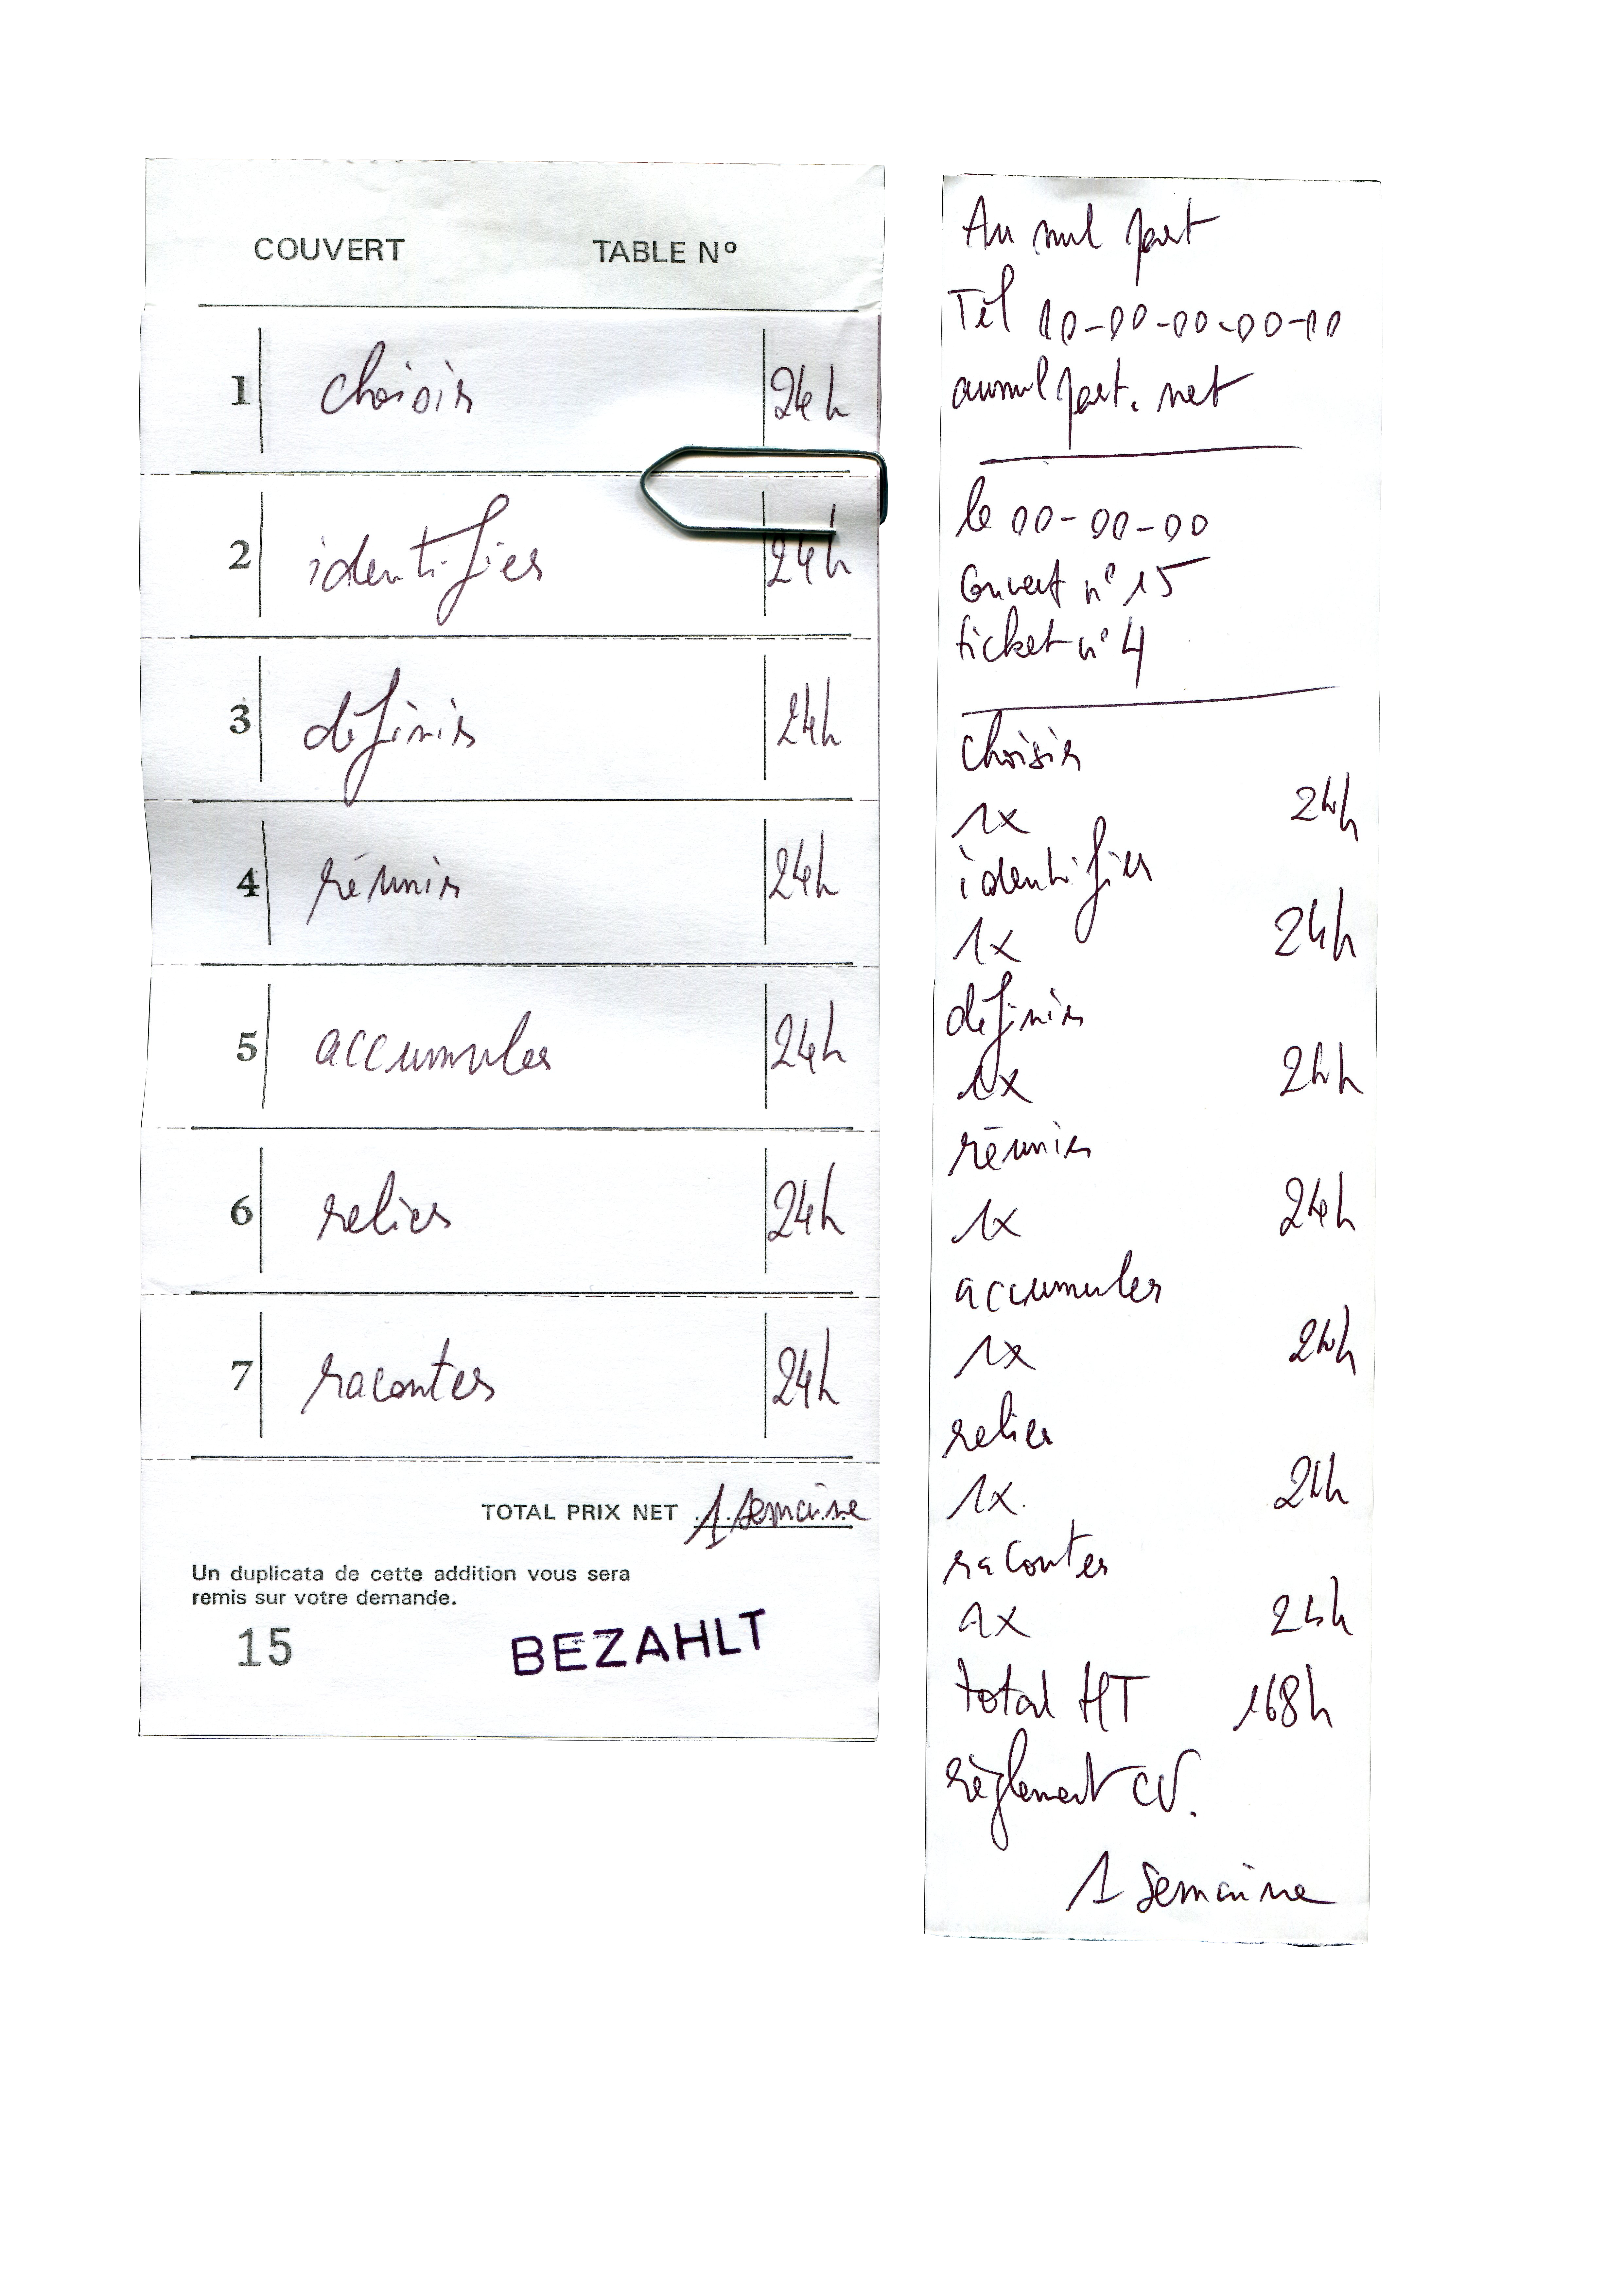 COUVERT TABLE Nº
1 choisir 24h
2 identifier 24h
3 définir 24h
4 réunir 24h
5 accumuler 24h
6 relier 24h
7 raconter 24h
TOTAL PRIX NET 1 semaine
Un duplicata de cette addition vous sera
remis sur votre demande.
15 BEZAHLT
Au nul part
Tél 10-00-00-00-00
aunulpart.net
le 00-00-00
Couvert n° 15
ticket n° 4
choisir
1x 24h
identifier
1x 24h
définir
1x 24h
réunir
1x 24h
accumuler
1x 24h
relier
1x 24h
raconter
1x 24h
total HT 168h
règlement CV.
1 semaine